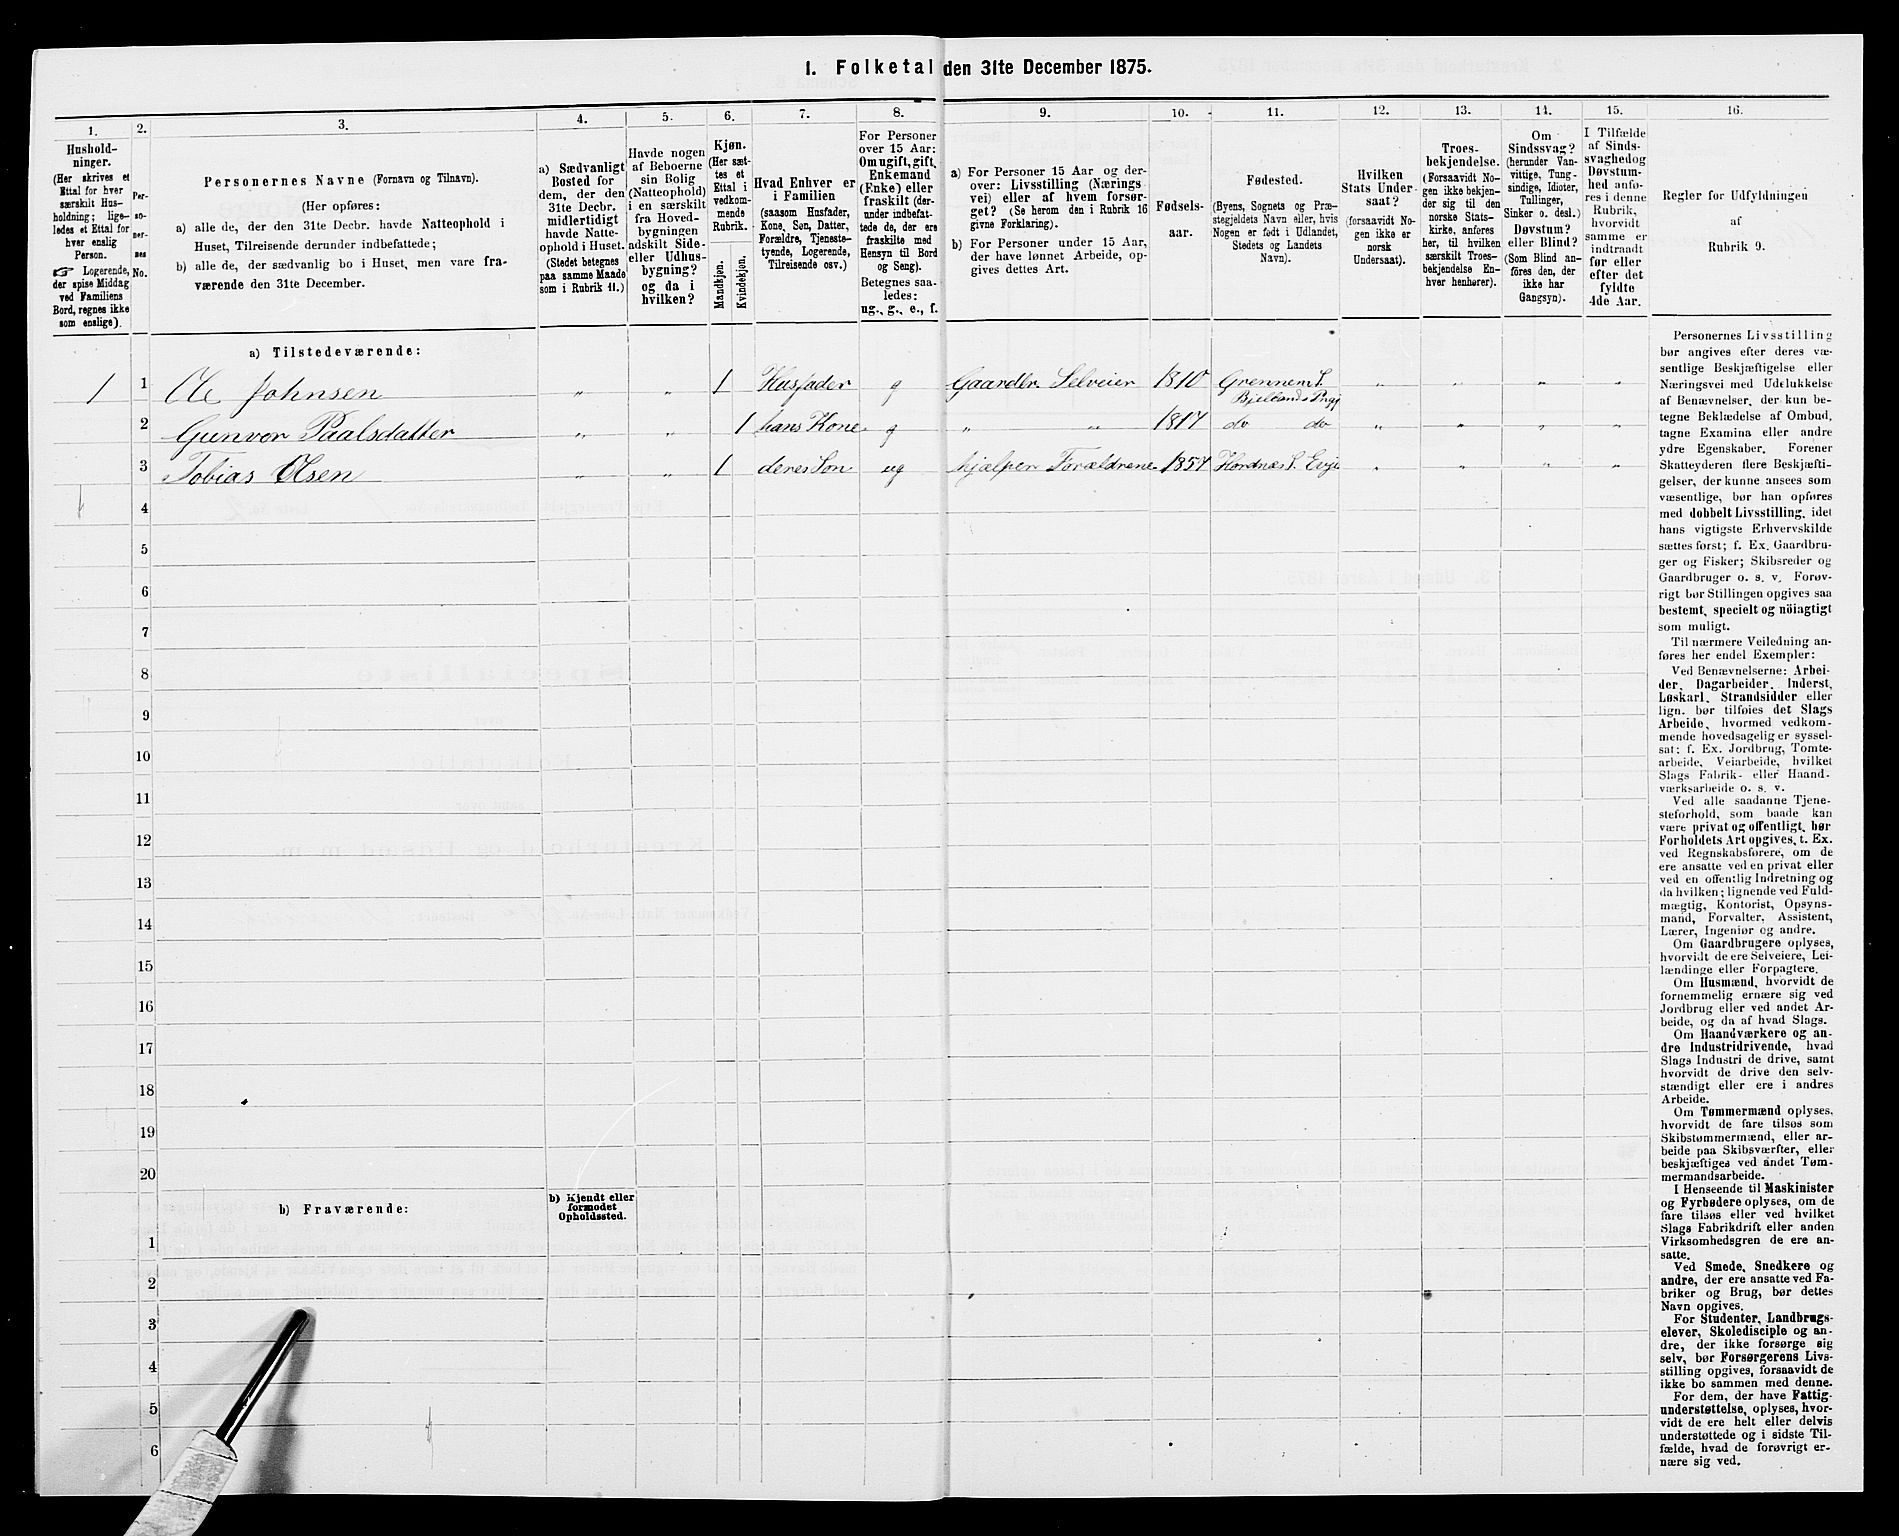 1. Folketal den 31te December 1875.
1.
Hushold-
ninger.
(Her skrives et
Ettal for hver
særskilt Hus-
holdning; lige-
ledes et Ettal for
hver enslig
Person.
☞ Logerende,
der spise Middag
ved Familiens
Bord, regnes ikke
som enslige).
2.
Per-
so-
ner-
nes
No.
3.
Personernes Navne (Fornavn og Tilnavn).
(Her opføres:
a) alle de, der den 31te Decbr. havde Natteophold i
Huset, Tilreisende derunder indbefattede;
b) alle de, der sædvanlig bo i Huset, men vare fra-
værende den 31te December.
4.
a) Sædvanligt
Bosted for
dem, der den
31te Decbr.
midlertidigt
havde Natte-
ophold i Huset.
(Stedet betegnes
paa samme Maade
som i Rubrik 11.)
5.
Havde nogen
af Beboerne
sin Bolig
(Natteophold)
i en særskilt
fra Hoved-
bygningen
adskilt Side-
eller Udhus-
bygning?
og da i
hvilken?
6.
Kjøn.
(Her sæt-
tes et
Ettal i
vedkom-
mende
Rubrik.
Mandkjøn.
Kvindekjøn.
7.
Hvad Enhver er
i Familien
(saasom Husfader,
Kone, Søn, Datter,
Forældre, Tjeneste-
tyende, Logerende,
Tilreisende osv.)
8.
For Personer
over 15 Aar:
Om ugift, gift,
Enkemand
(Enke) eller
fraskilt (der-
under indbefat-
tede de, der ere
fraskilte med
Hensyn til Bord
og Seng).
Betegnes saa-
ledes:
ug., g., e., f.
9.
a) For Personer 15 Aar og der-
over: Livsstilling (Nærings
vei) eller af hvem forsør-
get? (Se herom den i Rubrik 16
givne Forklaring).
b) For Personer under 15 Aar,
der have lønnet Arbeide, op-
gives dettes Art.
10.
Fødsels-
aar.
11.
Fødested.
(Byens, Sognets og Præ-
stegjeldets Navn eller, hvis
Nogen er født i Udlandet,
Stedets og Landets
Navn).
12.
Hvilken
Stats Under-
saat?
(forsaavidt No-
gen ikke er
norsk
Undersaat).
13.
Troes-
bekjendelse.
(Forsaavidt No-
gen ikke bekjen-
der sig til den
norske Stats-
kirke, anføres
her, til hvilken
særskilt Troes-
bekjendelse En-
hver henhører).
14.
Om
Sindssvag?
(herunder Van-
vittige, Tung-
sindige, Idioter,
Tullinger,
Sinker o. desl.)
Døvstum?
eller Blind?
(Som Blind an-
føres den, der
ikke har
Gangsyn).
15.
I Tilfælde
af Sinds-
svaghed og
Døvstum-
hed anfø-
res i denne
Rubrik,
hvorvidt
samme er
indtraadt
før eller
efter det
fyldte
4de Aar.
16.
Regler for Udfyldningen
af
Rubrik 9.
a) Tilstedeværende:
1 1 Ole Johnsen " " 1 Husfader g Gaardbr. Selveier 1810 Grennem S. Bjellands Prgj " " " "
2 Gunvor Paalsdatter " " 1 hans Kone g " " 1817 do do " " " "
3 Tobias Olsen " " 1 deres Søn ug hjælper Forældrene 1857 Hordnæs S. Evje " " " "
4
5
6
7
8
9
10
11
12
13
14
15
16
17
18
19
20
b) Fraværende:
b) Kjendt eller
formodet
Opholdssted.
1
2
3
4
5
6
Personernes Livsstilling
bør angives efter deres væ-
sentlige Beskjæftigelse eller
Næringsvei med Udelukkelse
af Benævnelser, der kun be-
tegne Beklædelse af Ombud,
tagne Examina eller andre
ydre Egenskaber. Forener
Skatteyderen flere Beskjæfti-
gelser, der kunne ansees som
væsentlige, bør han opføres
med dobbelt Livsstilling, idet
hans vigtigste Erhvervskilde
sættes først; f. Ex. Gaardbru-
ger og Fisker; Skibsreder og
Gaardbruger o. s. v. Forøv-
rigt bør Stillingen opgives saa
bestemt, specielt og nöiagtigt
som muligt.
Til nærmere Veiledning an-
føres her endel Exempler:
Ved Benævnelserne: Arbei-
der, Dagarbeider, Inderst,
Løskarl, Strandsidder eller
lign. bør tilføies det Slags
Arbeide, hvormed vedkom-
mende hovedsagelig er syssel-
sat; f. Ex. Jordbrug, Tomte-
arbeide, Veiarbeide, hvilket
Slags Fabrik- eller Haand-
værksarbeide o. s. v.
Ved alle saadanne Tjene-
steforhold, som baade kan
være privat og offentligt, bør
Forholdets Art opgives, t. Ex.
ved Regnskabsførere, om de
ere ansatte ved en privat eller
ved en offentlig Indretning og
da hvilken; lignende ved Fuld-
mægtig, Kontorist, Opsyns-
mand, Forvalter, Assistent,
Lærer, Ingeniør og andre.
Om Gaardbrugere oplyses,
hvorvidt de ere Selveiere, Lei-
lændinge eller Forpagtere.
Om Husmænd, hvorvidt de
fornemmelig ernære sig ved
Jordbrug eller ved andet Ar-
beide, og da af hvad Slags.
Om Haandværkere og an-
dre Industridrivende, hvad
Slags Industri de drive, samt
hvorvidt de drive den selv-
stændigt eller ere i andres
Arbeide.
Om Tømmermænd oplyses,
hvorvidt de fare tilsøs som
Skibstømmermænd, eller ar-
beide paa Skibsværfter, eller
beskjæftiges ved andet Tøm-
mermandsarbeide.
I Henseende til Maskinister
og Fyrbødere oplyses, om de
fare tilsøs eller ved hvilket
Slags Fabrikdrift eller anden
Virksomhedsgren de ere an-
satte.
Ved Smede, Snedkere og
andre, der ere ansatte ved Fa-
briker og Brug, bør dettes
Navn opgives.
For Studenter, Landbrugs-
elever, Skoledisciple og an-
dre, der ikke forsørge sig
selv, bør Forsørgerens Livs-
stilling opgives, forsaavidt de
ikke bo sammen med denne.
For dem, der have Fattig-
understøttelse, oplyses, hvor-
vidt de ere helt eller delvis
understøttede og i sidste Til-
fælde, hvad de forøvrigt er-
nære sig ved.